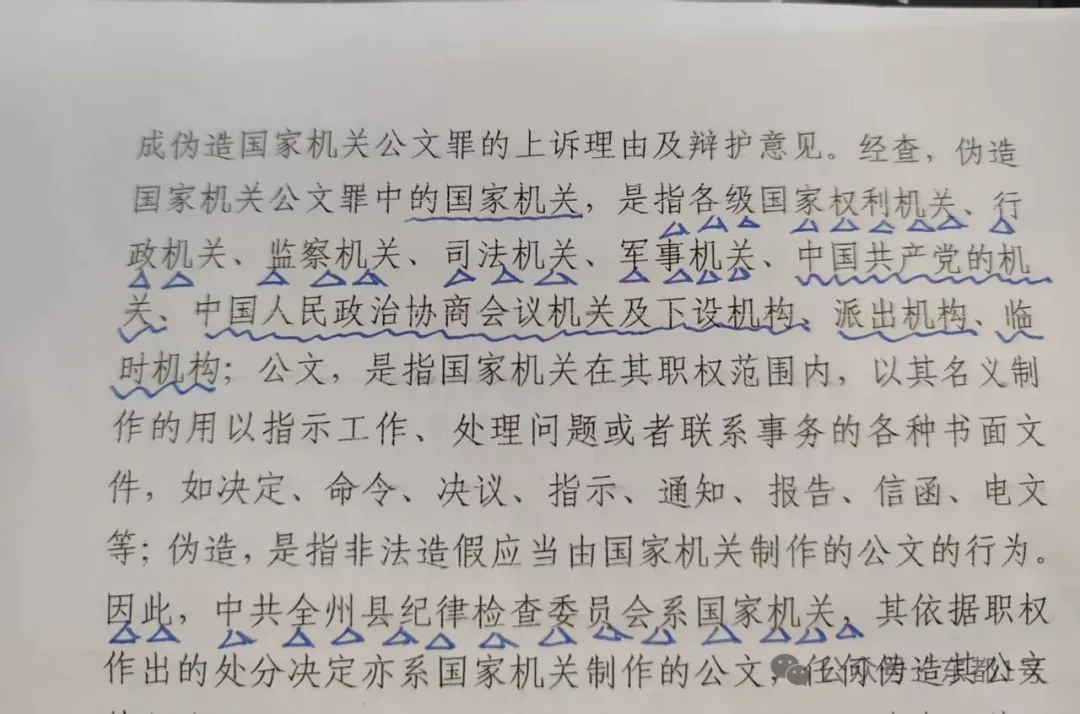 成伪造国家机关公文罪的上诉理由及辩护意见。经查，伪造
国家机关公文罪中的国家机关，是指各级国家权利机关、行
政机关、监察机关、司法机关、军事机关、中国共产党的机
关、中国人民政治协商会议机关及下设机构、派出机构、临
时机构；公文，是指国家机关在其职权范围内，以其名义制
作的用以指示工作、处理问题或者联系事务的各种书面文
件，如决定、命令、决议、指示、通知、报告、信函、电文
等；伪造，是指非法造假应当由国家机关制作的公文的行为。
因此，中共全州县纪律检查委员会系国家机关，其依据职权
作出的处分决定亦系国家机关制作的公文，任何伪造其公文